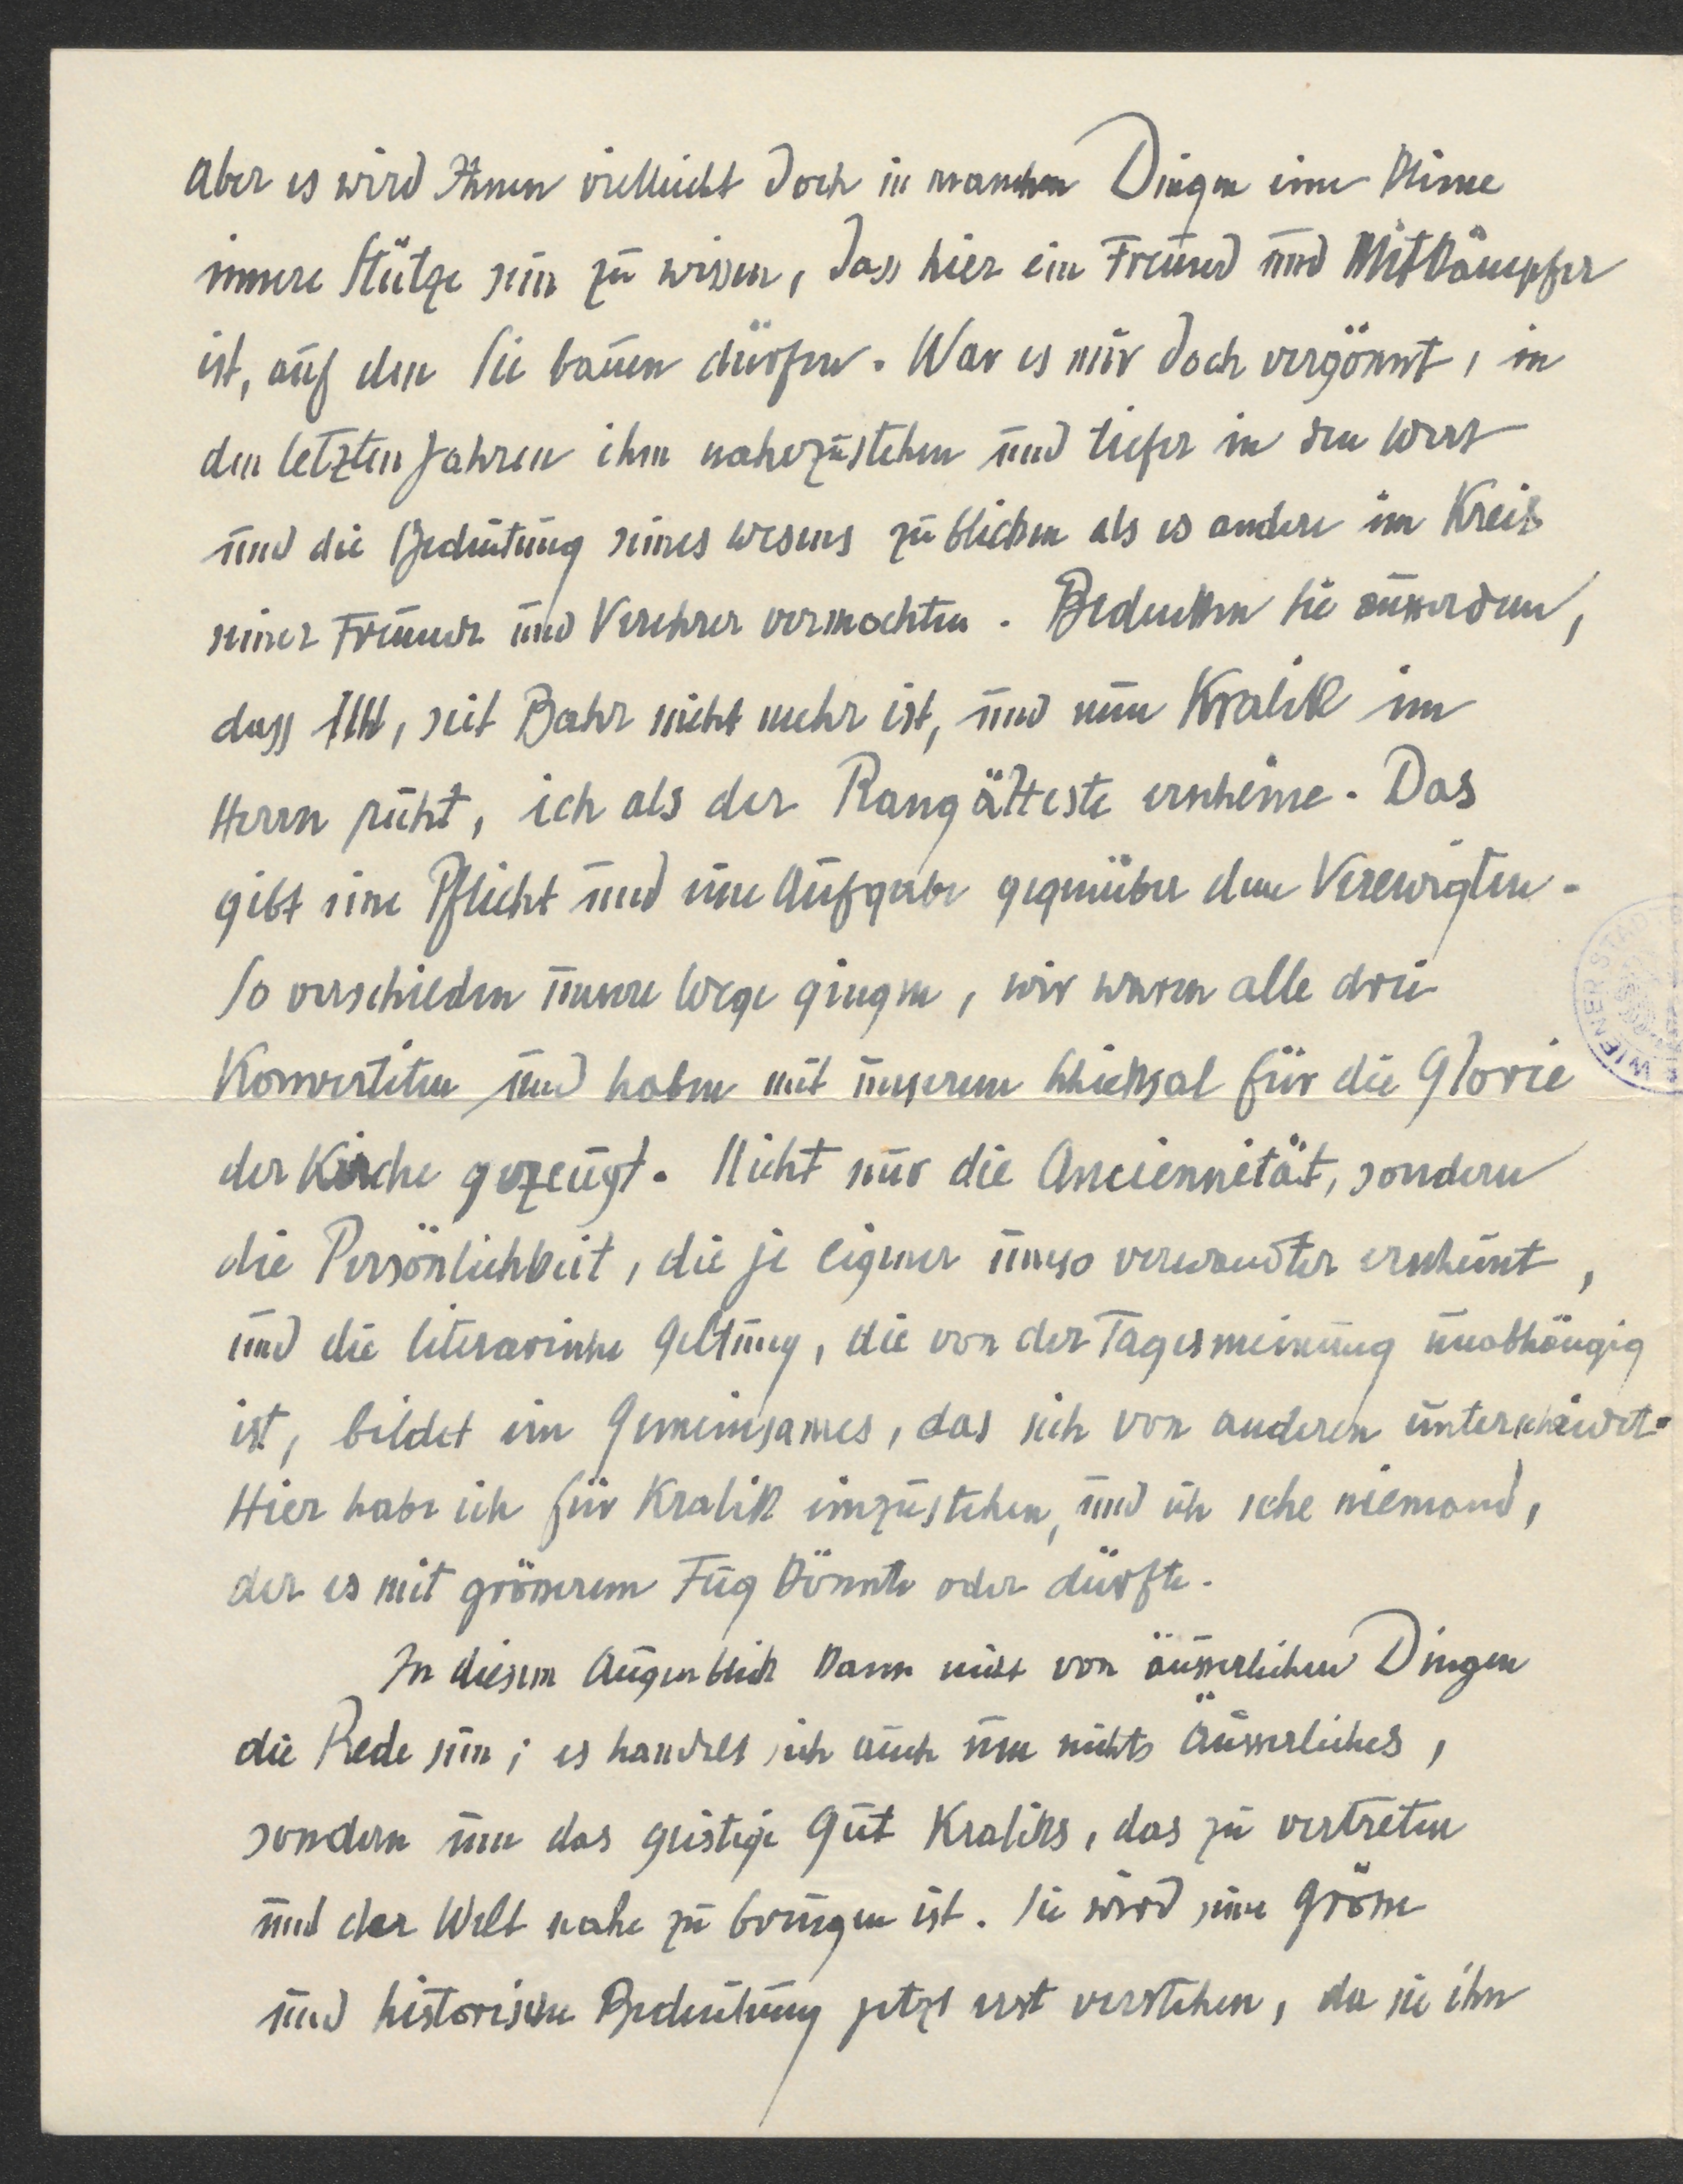 Aber es wird Ihnen vielleicht doch in manchen Dingen eine kleine
innere Stütze sein zu wissen, dass hier ein Freund und Mitkämpfer
ist, auf den Sie bauen dürfen. War es mir doch vergönnt, in
den letzten Jahren ihm nahezustehen und tiefer in den Wert
und die Bedeutung seines Wesens zu blicken als es andere im Kreis
seiner Freunde und Verehrer vermochten. Bedenken Sie ausserdem,
dass, seit Bahr nicht mehr ist, und nun Kralik im
Herrn ruht, ich als der Rangälteste erscheine. Das
gibt eine Pflicht und eine Aufgabe gegenüber dem Verewigten.
So verschieden unsere Wege gingen, wir waren alle drei
Konvertiten und haben mit unserem Schicksal für die Glorie
der Kirche gezeugt. Nicht nur die Anciennität, sondern
die Persönlichkeit, die je eigener umso verwandter erscheint,
und die literarische Geltung, die von der Tagesmeinung unabhängig
ist, bildet ein Gemeinsames, das sich von anderen unterscheidet.
Hier habe ich für Kralik einzustehen, und ich sehe niemand,
der es mit grösserem Fug könnte oder dürfte.
In diesem Augenblick kann nicht von äusserlichen Dingen
die Rede sein; es handelt sich auch um nichts Äusserliches,
sondern um das geistige Gut Kraliks, das zu vertreten
und der Welt nahe zu bringen ist. Sie wird seine Grösse
und historische Bedeutung jetzt erst verstehen, da sie ihn
WIENER STADT